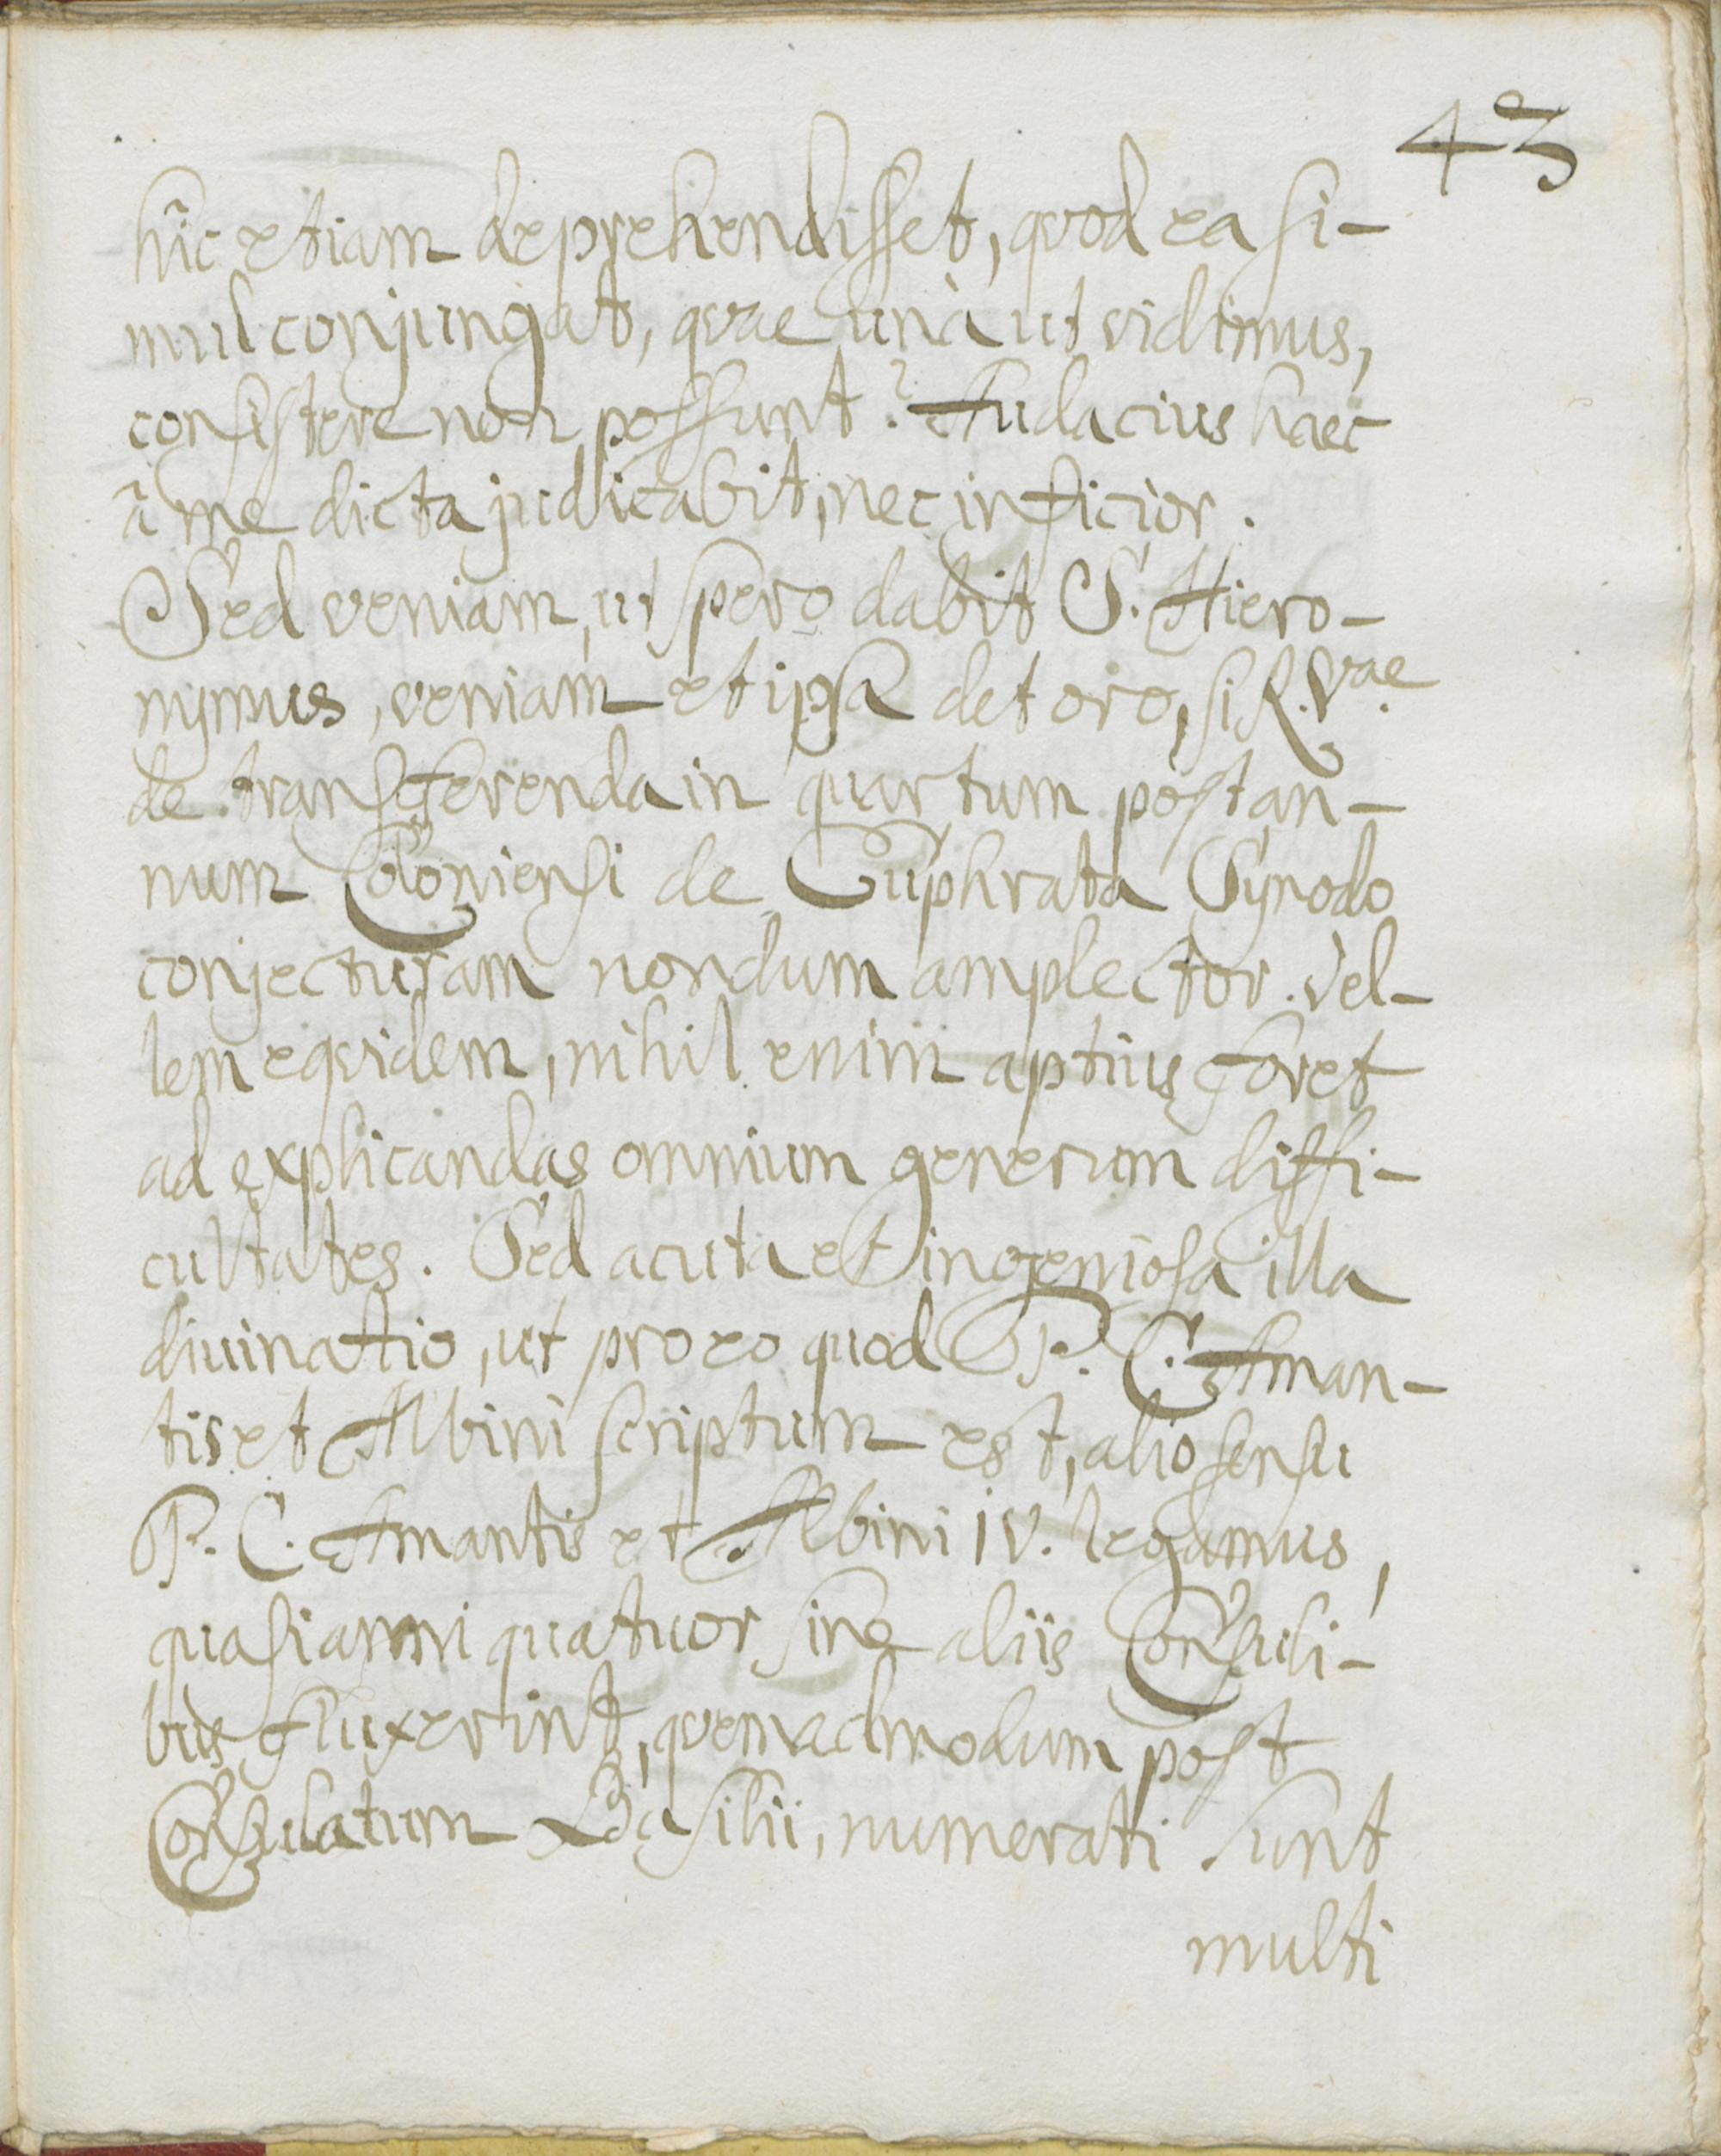 43
hîc etiam deprehendisset, qvod ea si-
mul conjungat, qvae unà ut vidimus,
consistere non possunt? Audacius haec
â me dicta judicabit, nec inficior.
Sed veniam, ut spero dabit S. Hiero-
nymus, veniam et ipsa det oro, si R. Vae.
de transferenda in quartum post an-
num Coloniensi de Euphrata Synodo
conjecturam nondum amplector. Vel-
lem eqvidem, nihil enim aptius foret
ad explicandas omnium generum diffi-
cultates. Sed acuta et ingeniosa illa
divinatio, ut pro eo quod P. C. Aman-
tis et Albini scriptum est, alio sensu
P. C. Amantis et Albini iv. legamus,
quasi anni quatuor sine aliis Consuli-
bus fluxerint, qvemadmodum post
Consulatum Basilii, numerati sunt
multi